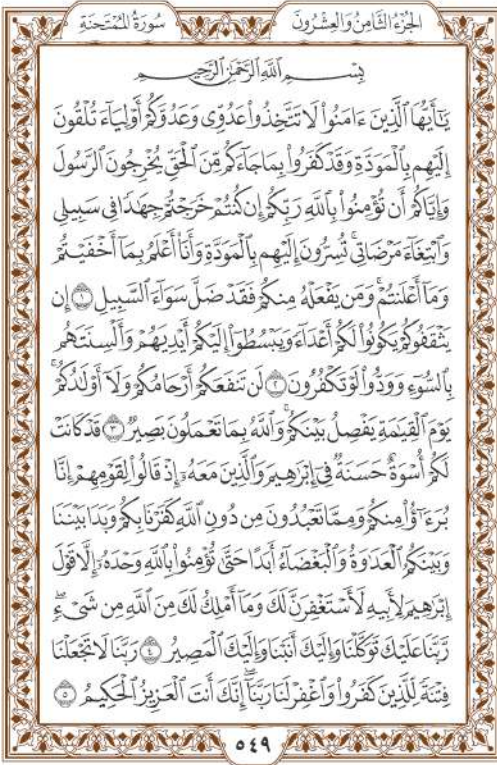 الجُزْءُ الثَّامِنُ وَالعِشْرُونَ سُورَةُ المُمْتَحنَةِ
بِسْمِ ٱللَّهِ ٱلرَّحْمَٰنِ ٱلرَّحِيمِ
يَٰٓأَيُّهَا ٱلَّذِينَ ءَامَنُوا۟ لَا تَتَّخِذُوا۟ عَدُوِّى وَعَدُوَّكُمْ أَوْلِيَآءَ تُلْقُونَ
إِلَيْهِم بِٱلْمَوَدَّةِ وَقَدْ كَفَرُوا۟ بِمَا جَآءَكُم مِّنَ ٱلْحَقِّ يُخْرِجُونَ ٱلرَّسُولَ
وَإِيَّاكُمْ أَن تُؤْمِنُوا۟ بِٱللَّهِ رَبِّكُمْ إِن كُنتُمْ خَرَجْتُمْ جِهَٰدًا فِى سَبِيلِى
وَٱبْتِغَآءَ مَرْضَاتِى تُسِرُّونَ إِلَيْهِم بِٱلْمَوَدَّةِ وَأَنَا۠ أَعْلَمُ بِمَآ أَخْفَيْتُمْ
وَمَآ أَعْلَنتُمْ وَمَن يَفْعَلْهُ مِنكُمْ فَقَدْ ضَلَّ سَوَآءَ ٱلسَّبِيلِ ١ إِن
يَثْقَفُوكُمْ يَكُونُوا۟ لَكُمْ أَعْدَآءً وَيَبْسُطُوٓا۟ إِلَيْكُمْ أَيْدِيَهُمْ وَأَلْسِنَتَهُم
بِٱلسُّوٓءِ وَوَدُّوا۟ لَوْ تَكْفُرُونَ ٢ لَن تَنفَعَكُمْ أَرْحَامُكُمْ وَلَآ أَوْلَٰدُكُمْ
يَوْمَ ٱلْقِيَٰمَةِ يَفْصِلُ بَيْنَكُمْ وَٱللَّهُ بِمَا تَعْمَلُونَ بَصِيرٌ ٣ قَدْ كَانَتْ
لَكُمْ أُسْوَةٌ حَسَنَةٌ فِىٓ إِبْرَٰهِيمَ وَٱلَّذِينَ مَعَهُۥٓ إِذْ قَالُوا۟ لِقَوْمِهِمْ إِنَّا
بُرَءَٰٓؤُا۟ مِنكُمْ وَمِمَّا تَعْبُدُونَ مِن دُونِ ٱللَّهِ كَفَرْنَا بِكُمْ وَبَدَا بَيْنَنَا
وَبَيْنَكُمُ ٱلْعَدَٰوَةُ وَٱلْبَغْضَآءُ أَبَدًا حَتَّىٰ تُؤْمِنُوا۟ بِٱللَّهِ وَحْدَهُۥٓ إِلَّا قَوْلَ
إِبْرَٰهِيمَ لِأَبِيهِ لَأَسْتَغْفِرَنَّ لَكَ وَمَآ أَمْلِكُ لَكَ مِنَ ٱللَّهِ مِن شَىْءٍۖ
رَّبَّنَا عَلَيْكَ تَوَكَّلْنَا وَإِلَيْكَ أَنَبْنَا وَإِلَيْكَ ٱلْمَصِيرُ ٤ رَبَّنَا لَا تَجْعَلْنَا
فِتْنَةً لِّلَّذِينَ كَفَرُوا۟ وَٱغْفِرْ لَنَا رَبَّنَآۖ إِنَّكَ أَنتَ ٱلْعَزِيزُ ٱلْحَكِيمُ ٥
٥٤٩